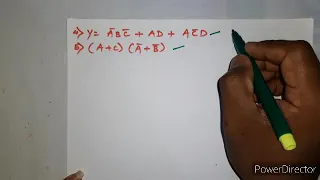 a) Y = A̅BC̅ + AD + AC̅D
b) (A+C) (A̅+B̅)
PowerDirector